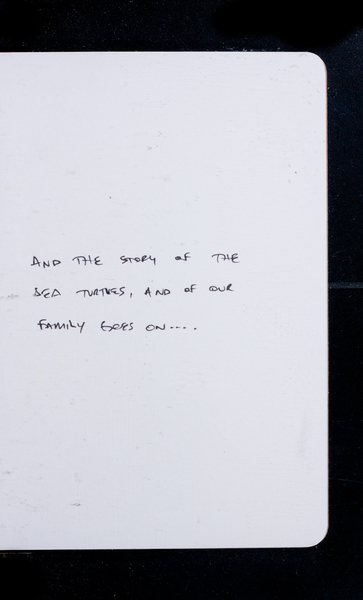 AND THE STORY OF THE
SEA TURTLES, AND OF OUR
FAMILY GOES ON....